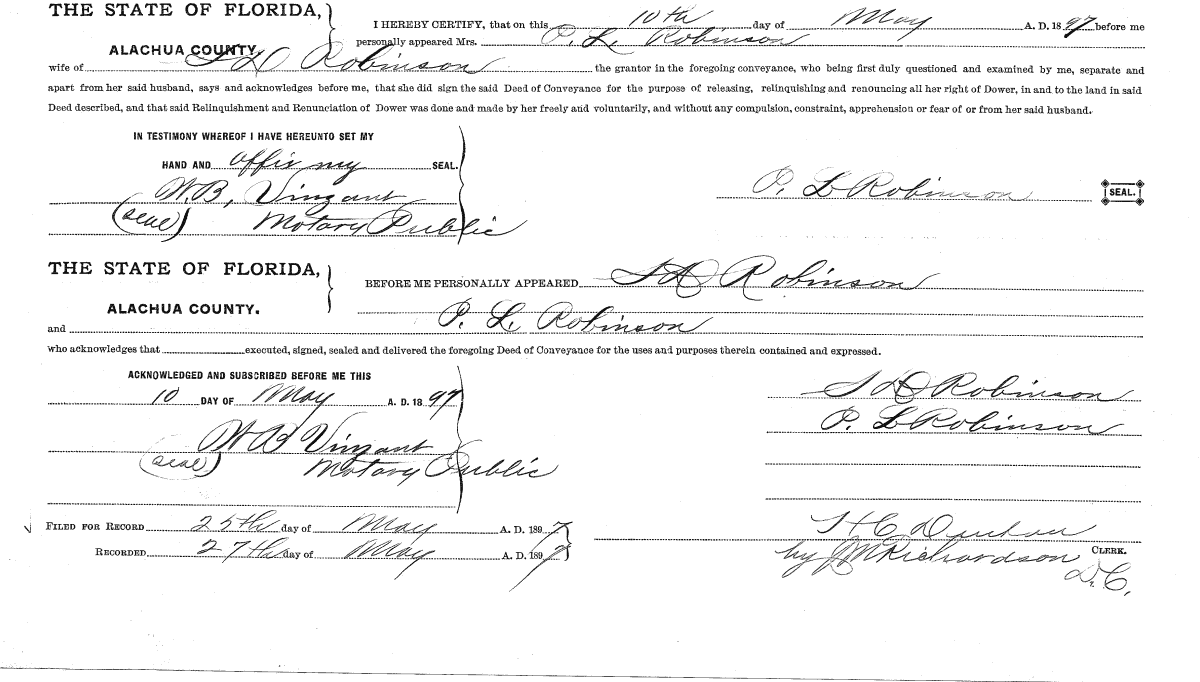 THE STATE OF FLORIDA,
I HEREBY CERTIFY, that on this 10th day of May A. D. 1897 before me
ALACHUA COUNTY.
personally appeared Mrs. P. L. Robinson
wife of S D Robinson the grantor in the foregoing conveyance, who being first duly questioned and examined by me, separate and
apart from her said husband, says and acknowledges before me, that she did sign the said Deed of Conveyance for the purpose of releasing, relinquishing and renouncing all her right of Dower, in and to the land in said
Deed described, and that said Relinquishment and Renunciation of Dower was done and made by her freely and voluntarily, and without any compulsion, constraint, apprehension or fear of or from her said husband.
IN TESTIMONY WHEREOF I HAVE HEREUNTO SET MY
HAND AND affix my SEAL.
W. B. Vinzant
P. L Robinson SEAL.
(seal) Notary Public
THE STATE OF FLORIDA,
BEFORE ME PERSONALLY APPEARED S D Robinson
ALACHUA COUNTY.
and P. L. Robinson
who acknowledges that executed, signed, sealed and delivered the foregoing Deed of Conveyance for the uses and purposes therein contained and expressed.
ACKNOWLEDGED AND SUBSCRIBED BEFORE ME THIS
10 DAY OF May A. D. 1897
S D Robinson
P. L Robinson
W B Vinzant
(seal) Notary Public
FILED FOR RECORD 25th day of May A. D. 1897
H C Denham
RECORDED 27th day of May A. D. 1897
CLERK.
by J M Richardson
D. C.